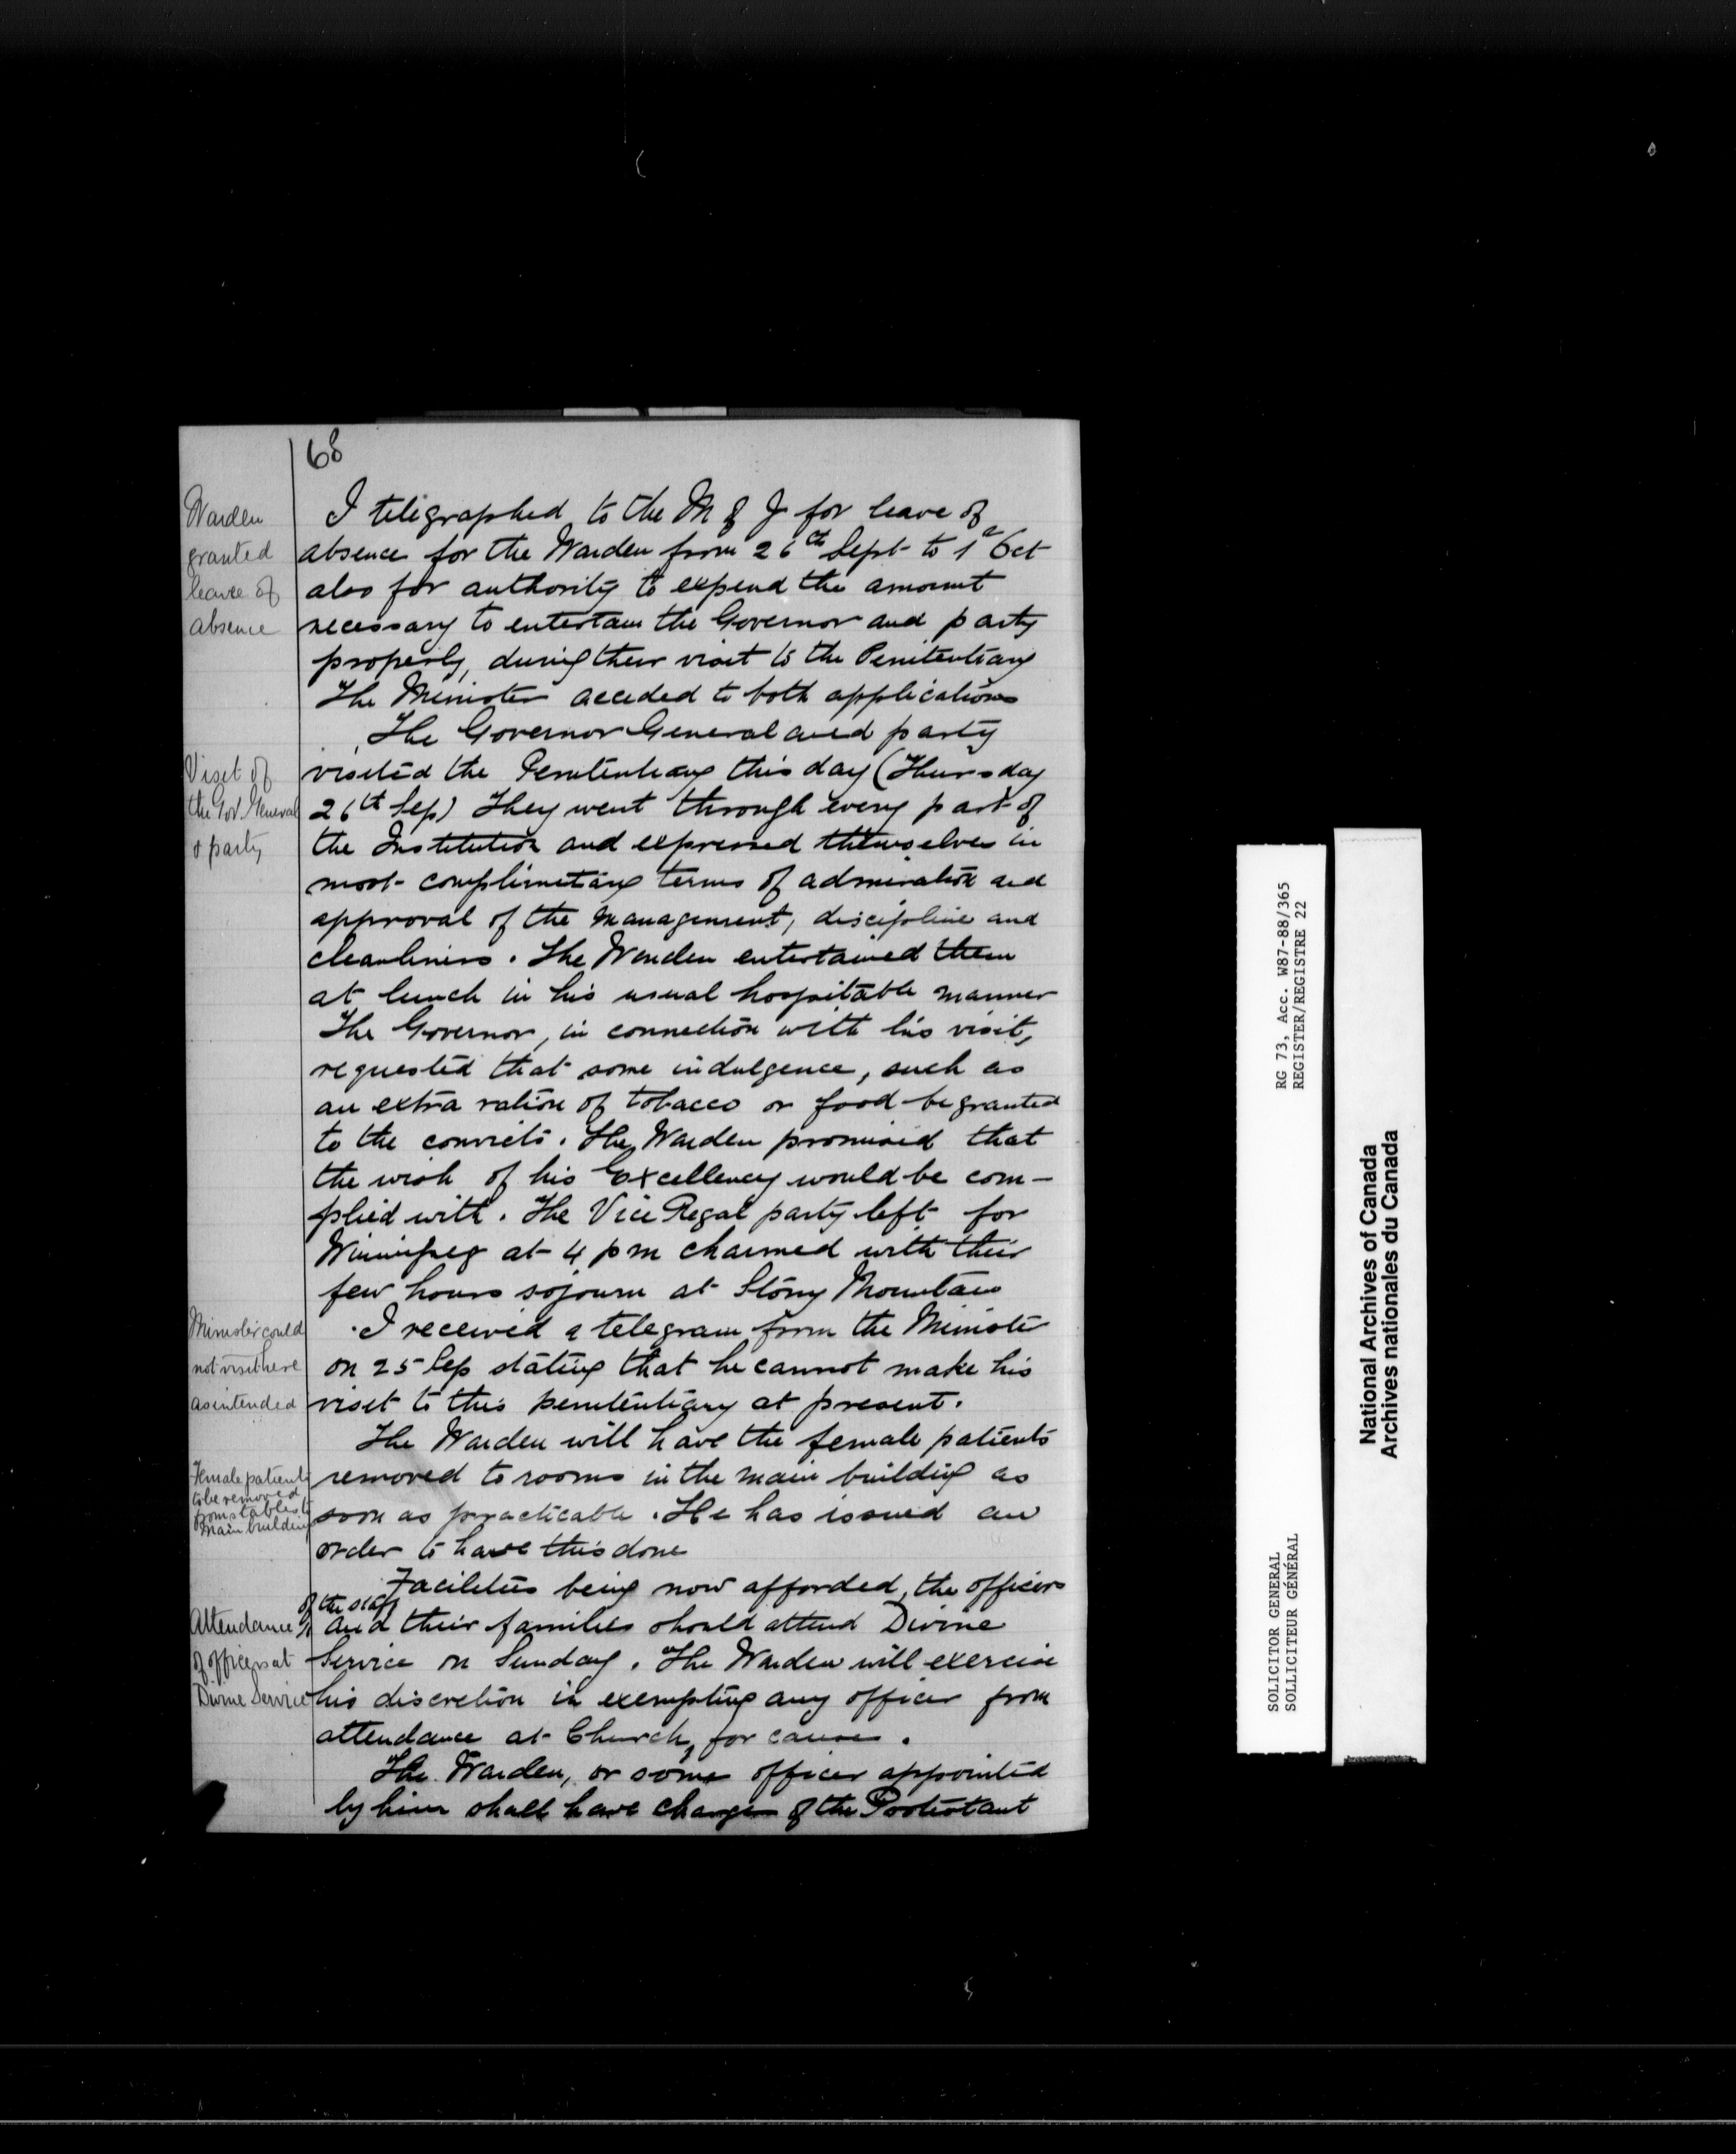 68
Warden
granted
leave of
absence
I telegraphed to the M of J for leave of
absence for the Warden from 26th Sept to 1st Oct
also for authority to expend the amount
necessary to entertain the Governor and party
properly, during their visit to the Penitentiary
The Minister acceded to both applications
The Governor General and party
Visit of
the Gov. General
& party
visited the Penitentiary this day (Thursday
26th Sep) They went through every part of
the Institution and expressed themselves in
most complimentary terms of admiration and
approval of the management, discipline and
cleanliness. The Warden entertained them
at lunch in his usual hospitable manner
The Governor, in connection with his visit,
requested that some indulgence, such as
an extra ration of tobacco or food be granted
to the convicts. The Warden promised that
the wish of his Excellency would be com-
plied with. The Vice Regal party left for
Winnipeg at 4 pm charmed with their
few hours sojourn at Stony Mountain
Minister could
not visit here
as intended
I received a telegram from the Minister
on 25 Sep stating that he cannot make his
visit to this penitentiary at present.
The Warden will have the female patients
Female patients
to be removed
from stables to
main building
removed to rooms in the main building as
soon as practicable. He has issued an
order to have this done
Facilities being now afforded, the officers
of the staff
Attendance
of officers at
Divine Service
and their families should attend Divine
Service on Sunday. The Warden will exercise
his discretion in exempting any officer from
attendance at Church, for cause.
The Warden, or some officer appointed
by him shall have charge of the Protestant
RG 73, Acc. W87-88/365
REGISTER/REGISTRE 22
SOLICITOR GENERAL
SOLLICITEUR GÉNÉRAL
National Archives of Canada
Archives nationales du Canada